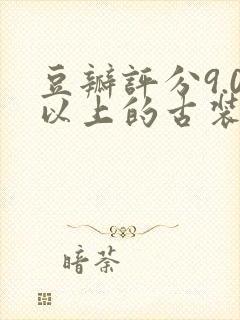 豆瓣評分9.0
以上的古裝
暗荼